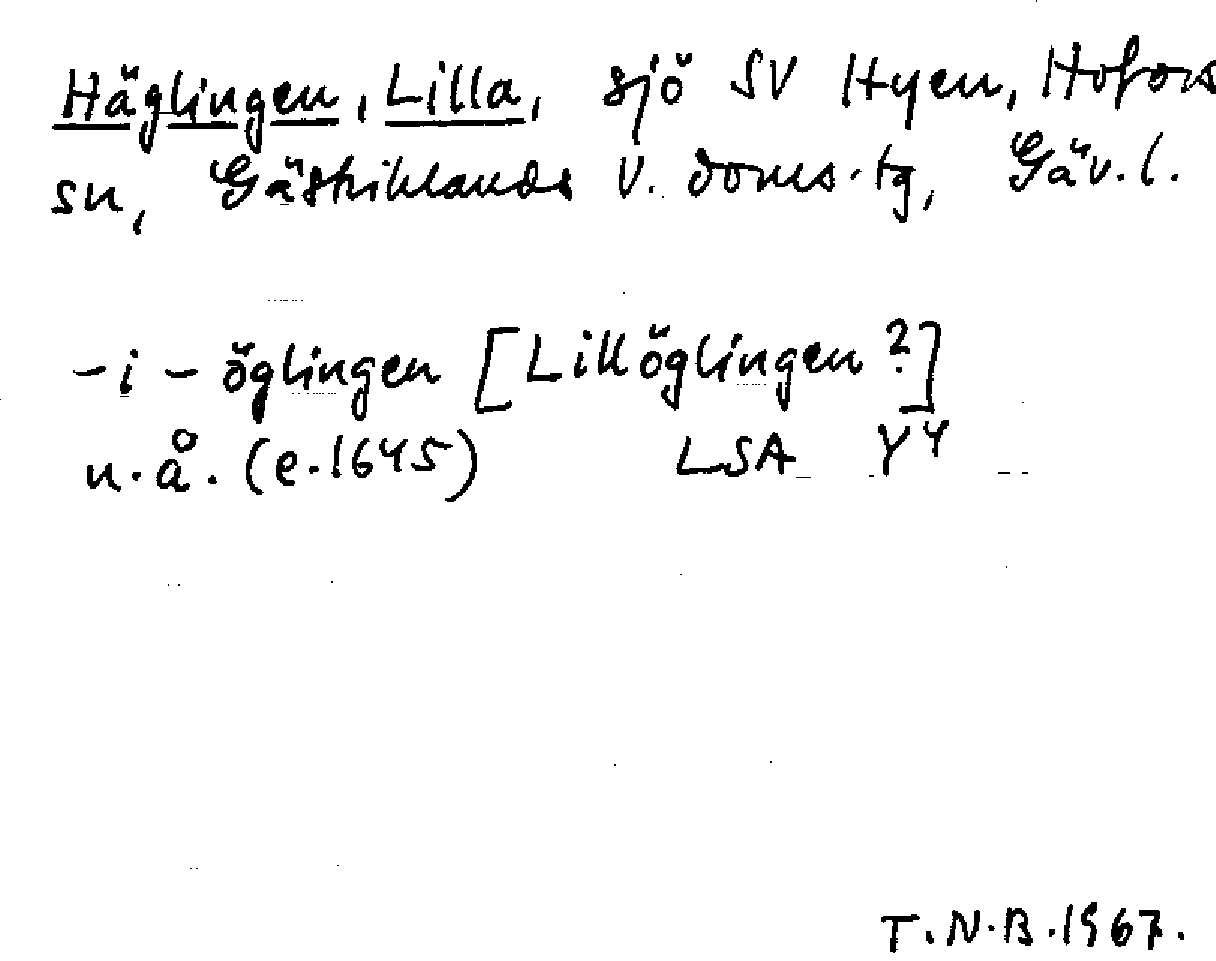 Häglingen, Lilla, sjö SV Hyen, Hofors
sn, Gästriklands V. doms.tg, Gäv.l.
-i- öglingen [Lillöglingen?]
u.å. (e.1645) LSA Y4
T.N.B.1967.